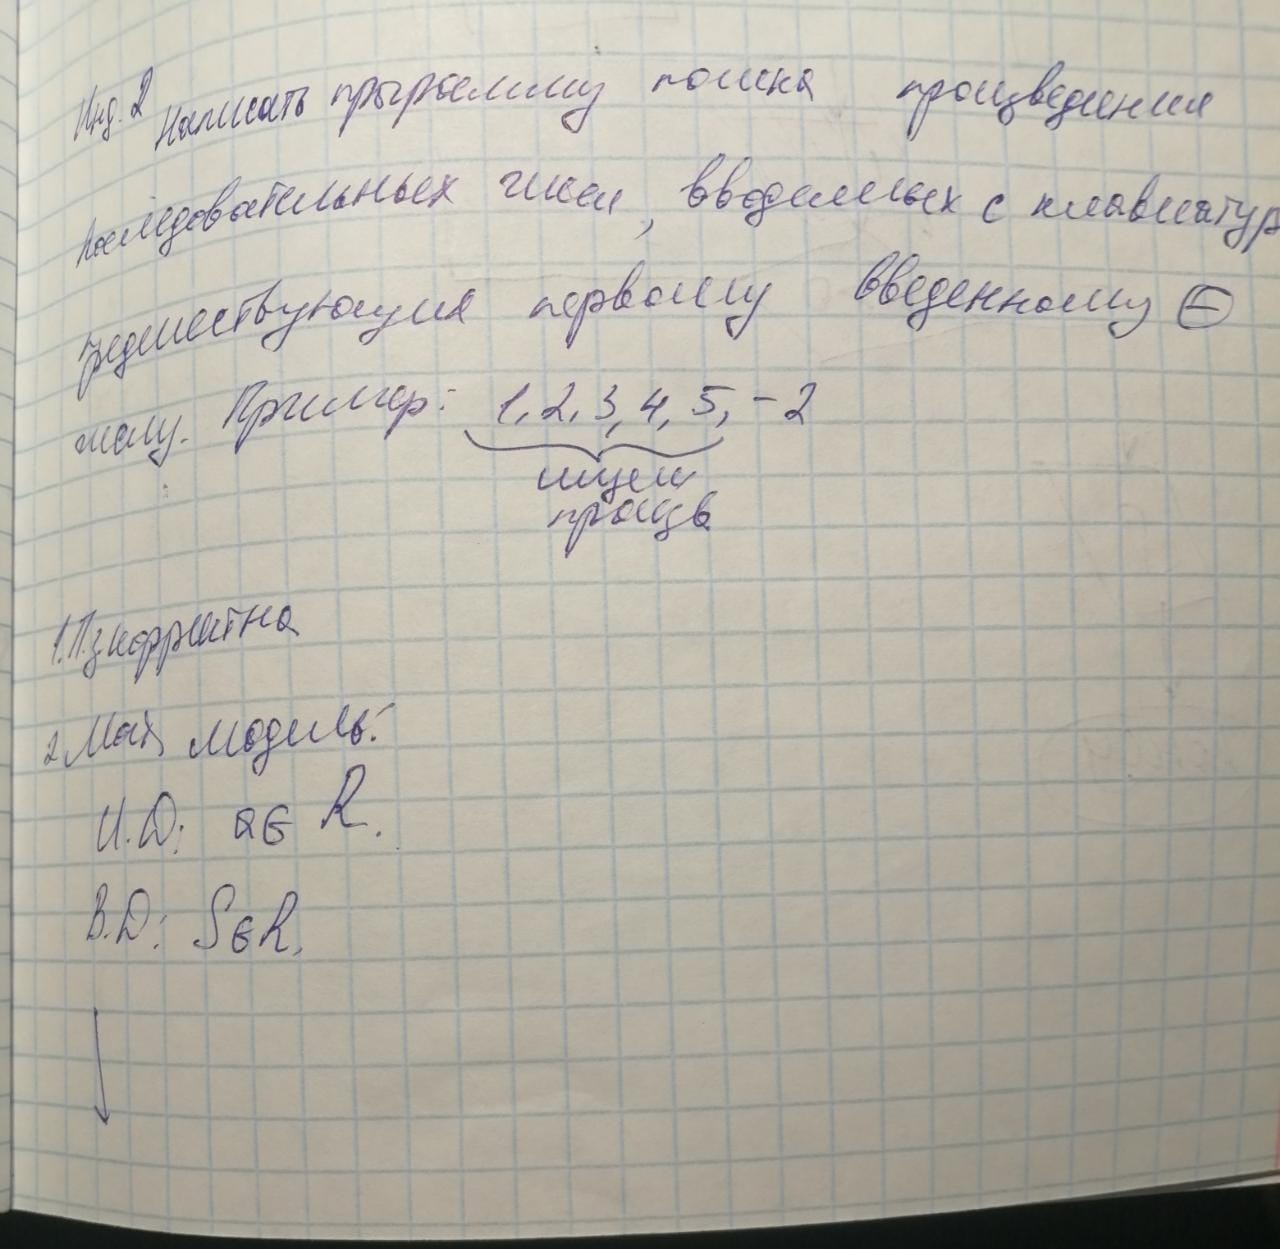 Инд. 2 Написать программу поиска произведения
последовательных чисел, вводимых с клавиатур
предшествующих первому введенному ⊖
числу. Пример: 1, 2, 3, 4, 5, -2
ищем
произв
1. П.з корректна
2 Мат. модель:
И.D: a∈ R.
В.D: S∈R.